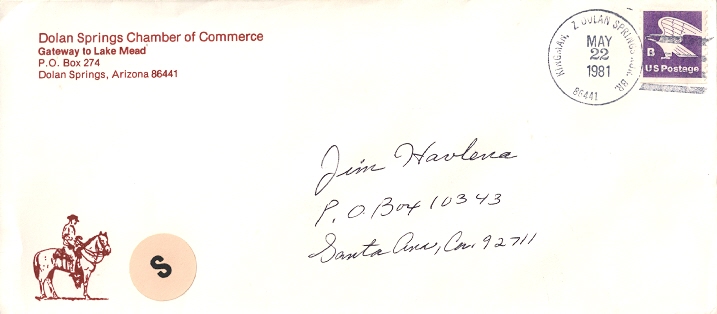 Dolan Springs Chamber of Commerce
Gateway to Lake Mead
P.O. Box 274
Dolan Springs, Arizona 86441
KINGMAN, Z DOLAN SPRINGS RUR. BR.
MAY
22
1981
86441
B
US Postage
Jim Havlena
P. O. Box 10343
Santa Ana, Ca. 92711
S